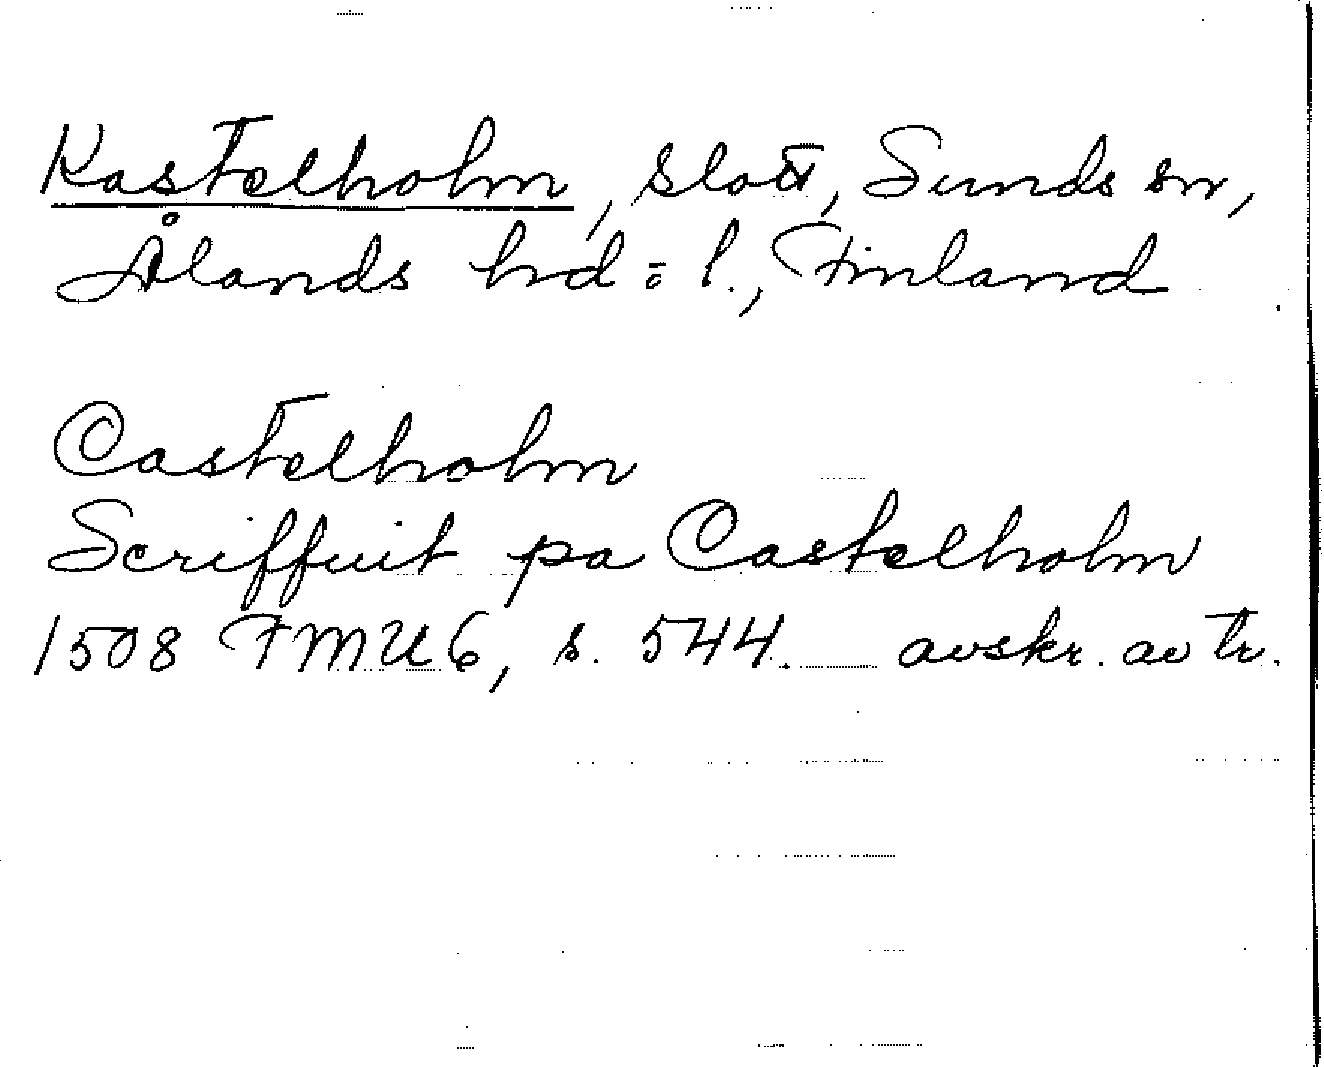 Kastelholm, slott, Sunds sn,
Ålands hd o l., Finland
Castelholm
Scriffuit pa Castelholm
1508 FMU 6, s. 544. avskr. av tr.